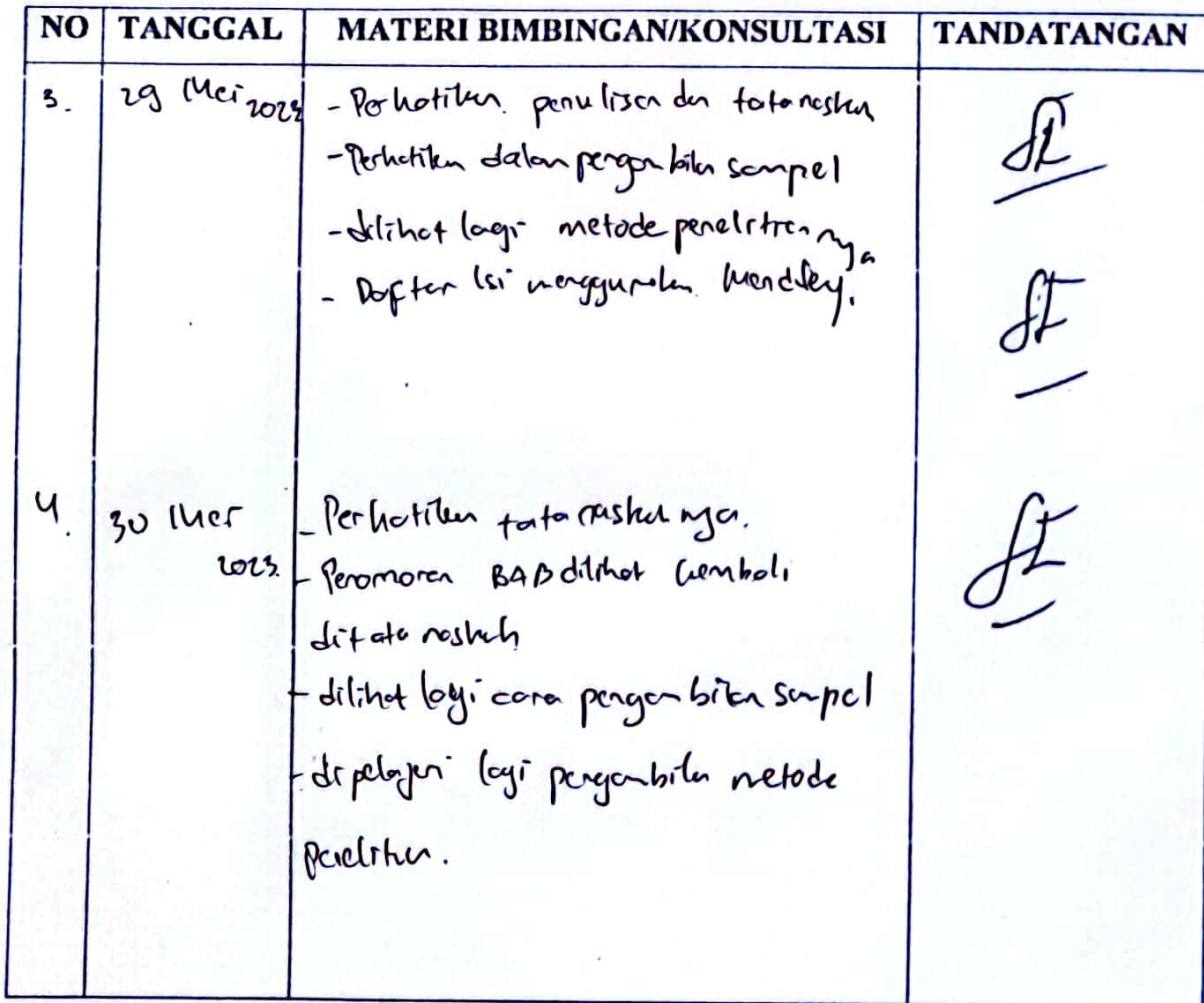 NO TANGGAL MATERI BIMBINGAN/KONSULTASI TANDATANGAN
3. 29 Mei 2023 - Perhatikan penulisan dan tata naskah
- Perhatikan dalam pengambilan sampel
- dilihat lagi metode penelitiannya
- Daftar Isi menggunakan Mendeley.
4. 30 Mei 2023. - Perhatikan tata naskahnya.
- Penomoran BAB dilihat kembali
ditata naskah
- dilihat lagi cara pengambilan sampel
- dipelajari lagi pengambilan metode
penelitian.